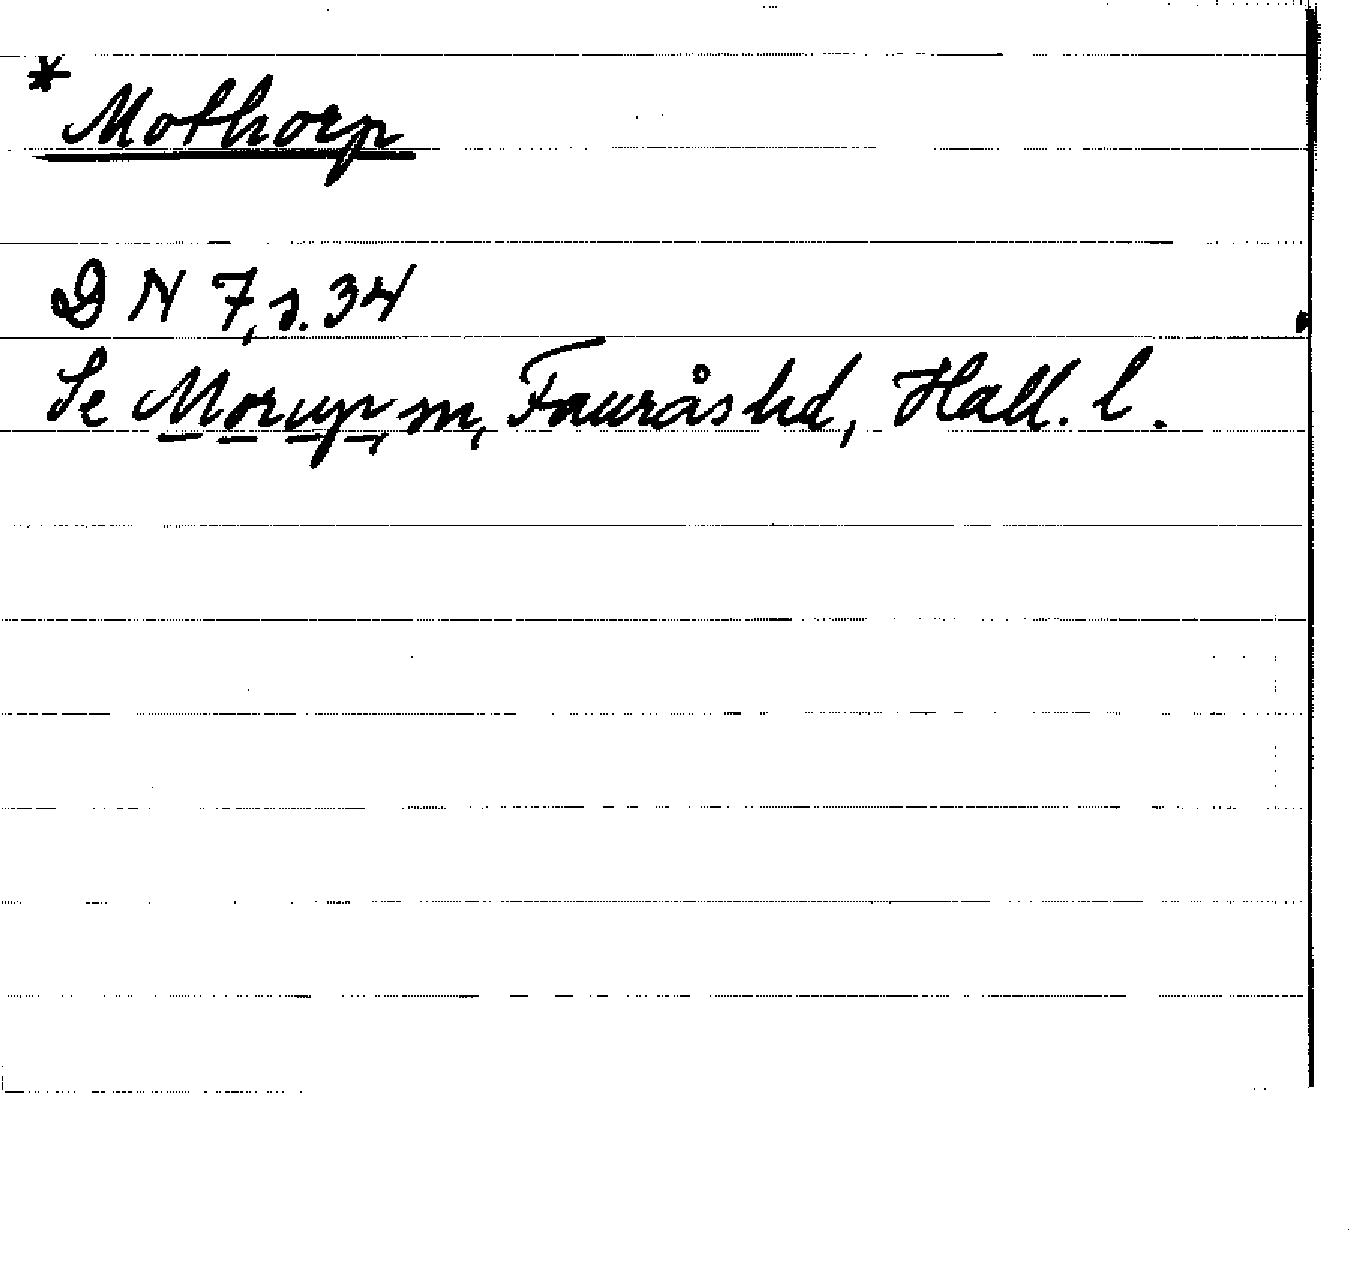 * Mothorp
D N 7, s. 34
Se Morup sn, Faurås hd, Hall. l.